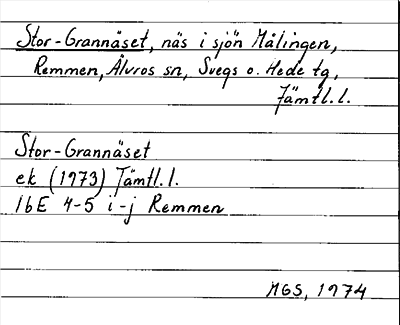 Stor-Grannäset, näs i sjön Målingen,
Remmen, Älvros sn, Svegs o. Hede tg,
Jämtl.l.
Stor-Grannäset
ek (1973) Jämtl.l.
16E 4-5 i-j Remmen
MGS, 1974